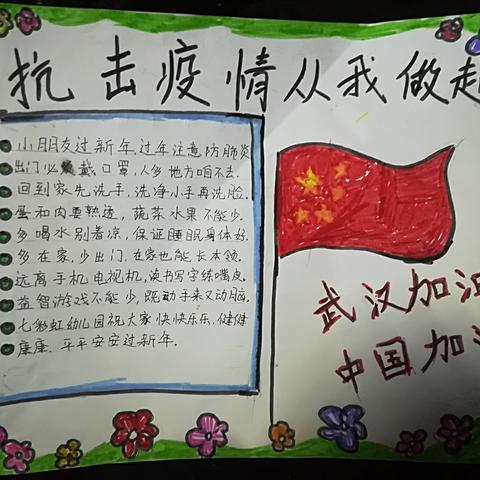 抗击疫情从我做起
小朋友过新年,过年注意防肺炎
出门必戴口罩,人多地方咱不去.
回到家先洗手,洗净小手再洗脸.
蛋和肉要熟透,蔬菜水果不能少.
多喝水别着凉,保证睡眠身体好.
多在家,少出门,在家也能长本领.
远离手机电视机,读书写字练嘴皮.
益智游戏不能少,既动手来又动脑.
七彩虹幼儿园祝大家快快乐乐、健健
康康、平平安安过新年.
武汉加油
中国加油